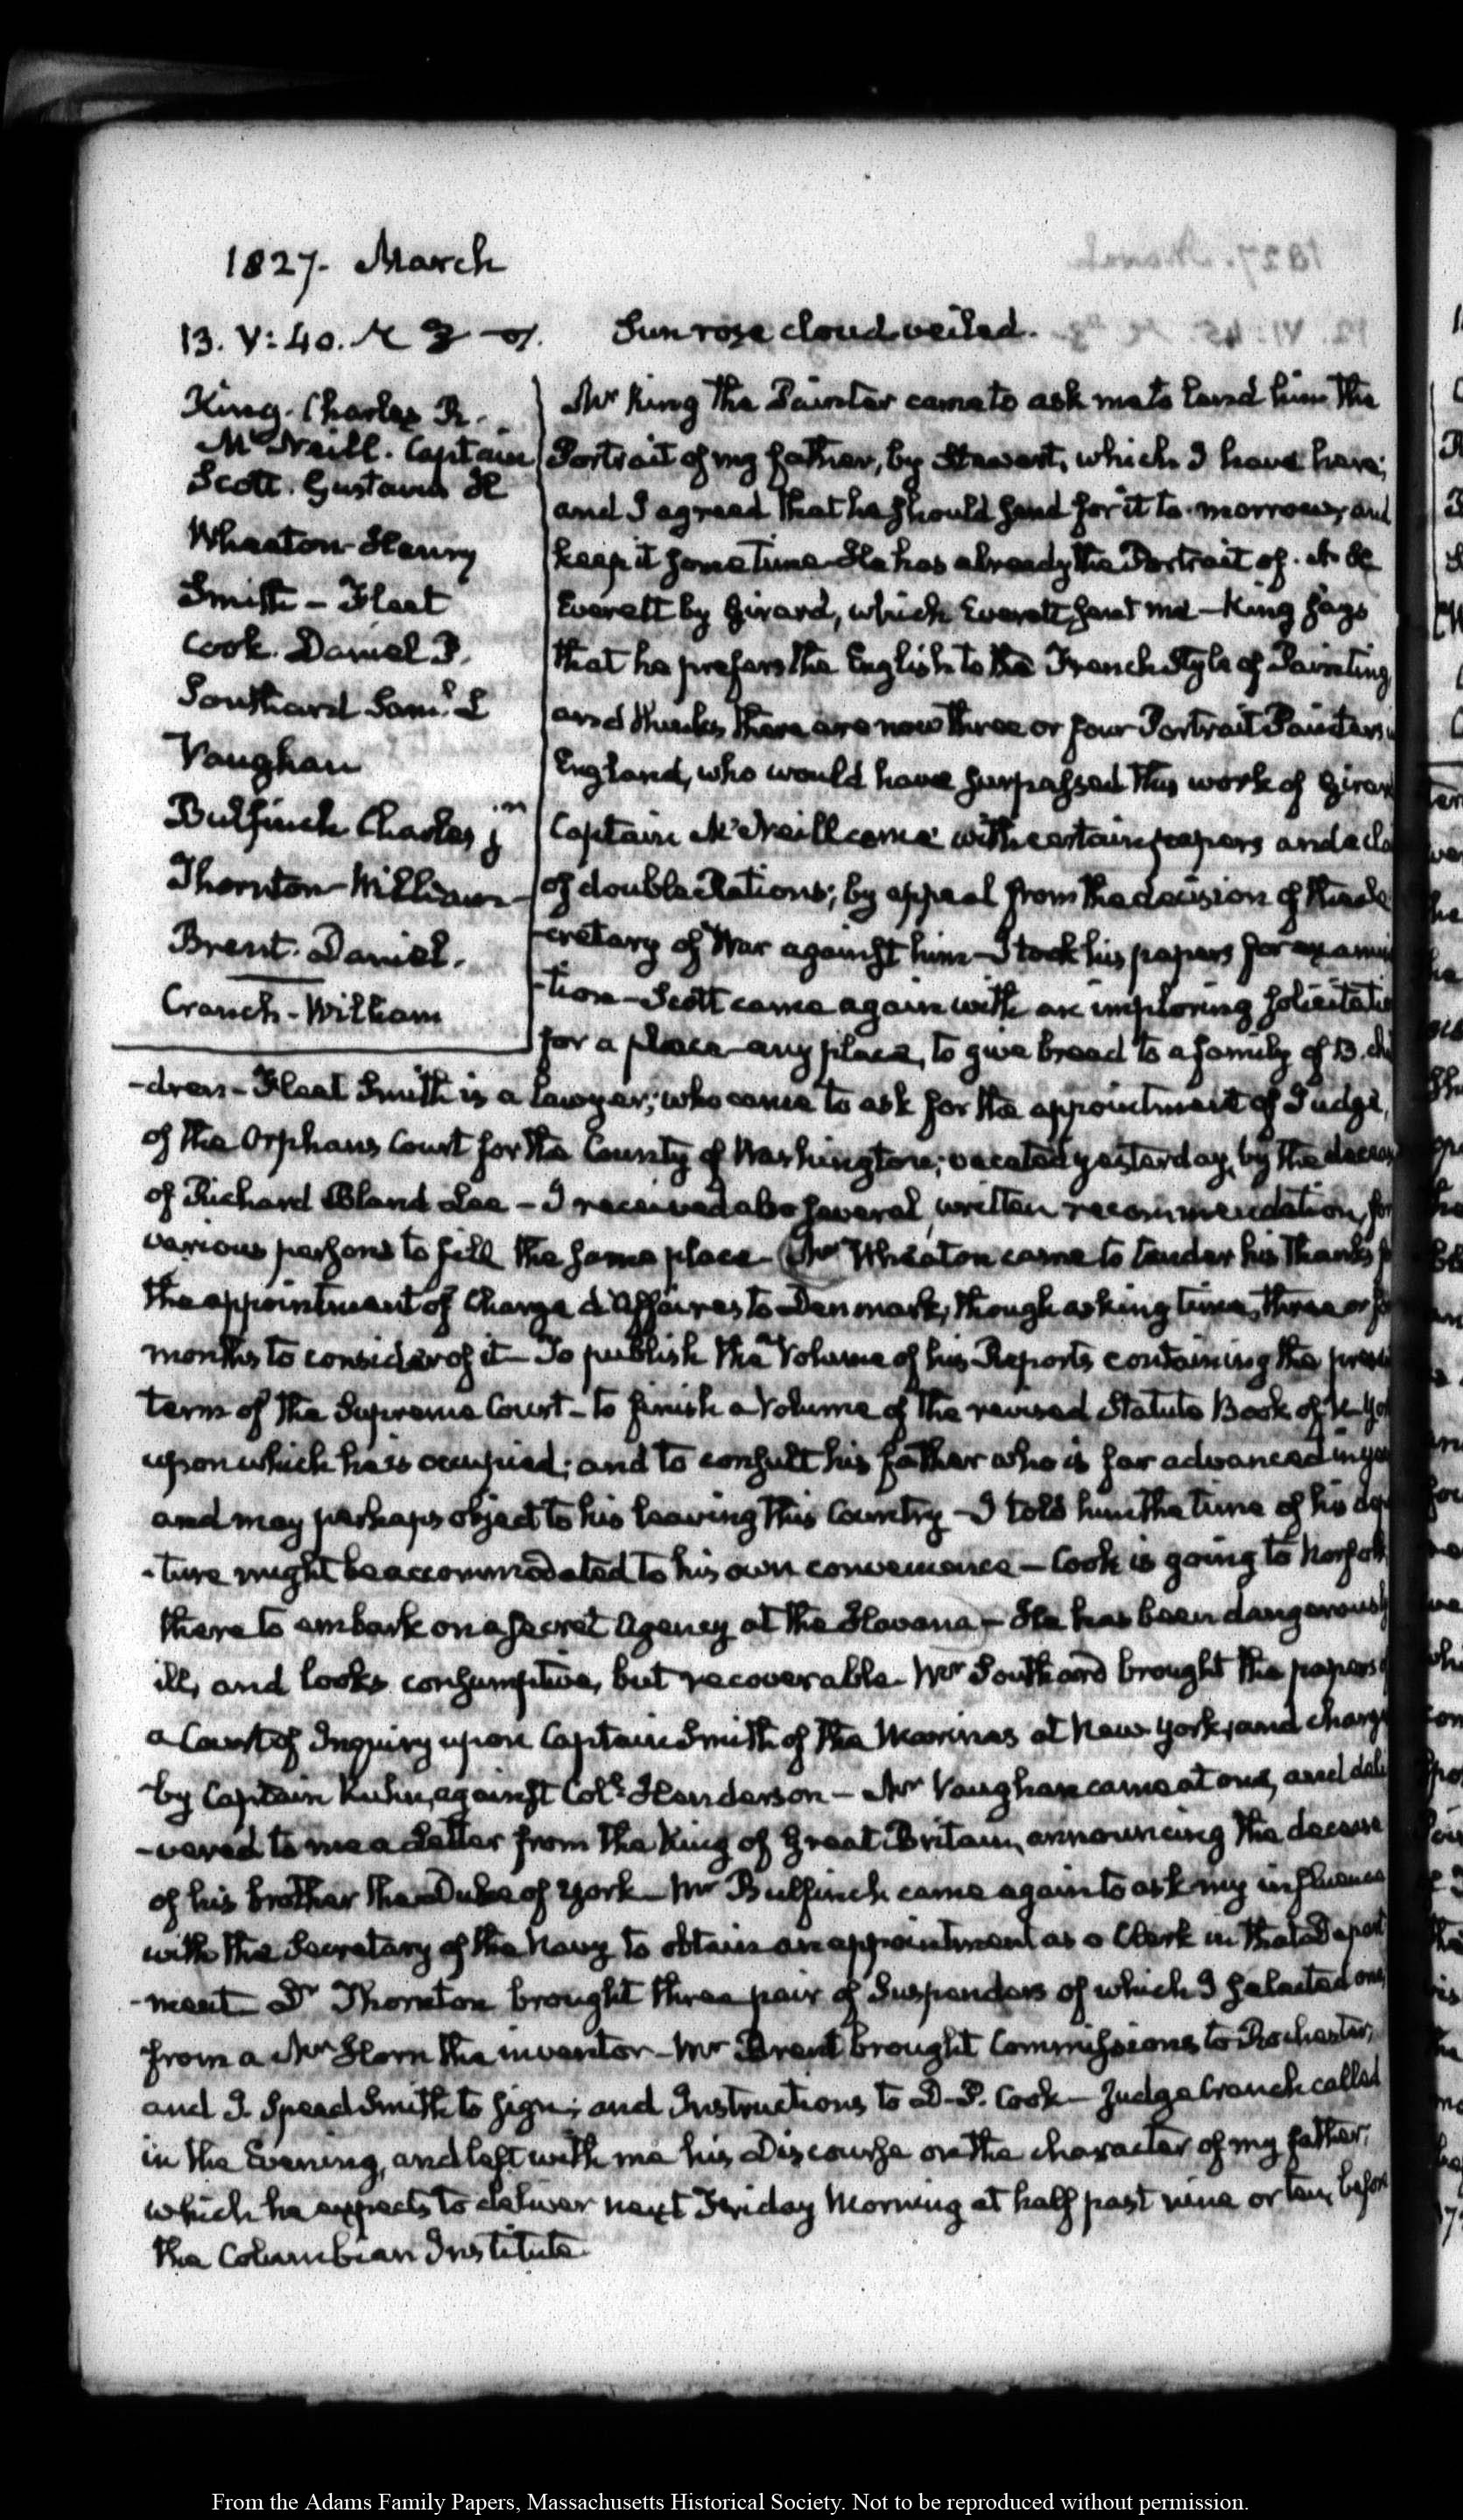 1827. March
13. V:40.
Sun rose cloud veiled.
King. Charles B.
McNeill. Captain
Scott. Gustavus H
Wheaton Henry
Smith - Fleet
Cook. Daniel P.
Southard Saml. L
Vaughan
Bulfinch Charles jr
Thornton - William
Brent. Daniel.
Cranch - William
Mr King the Painter came to ask me to lend him the
Portrait of my father, by Stewart, which I have here;
and I agreed that he should send for it to-morrow, and
keep it some time. He has already the Portrait of A. H.
Everett by Girard, which Everett sent me - King says
that he prefers the English to the French Style of Painting
and thinks there are now three or four Portrait Painters
England, who would have surpassed this work of
Captain McNeill came with certain papers and a
of double Rations; by appeal from the decision of the Se
-cretary of War against him - I took his papers for
-tion - Scott came again with an imploring
for a place - any place, to give bread to a family of 13.
-dren - Fleet Smith is a Lawyer; who came to ask for the appointment of Judge,
of the Orphans Court for the County of Washington; vacated yesterday, by the
of Richard Bland Lee - I received also several, written recommendations,
various persons to fill the same place - Mr Wheaton came to tender his thanks
the appointment of Charge d'Affaires to Denmark, though asking time, three or
months to consider of it - To publish the Volume of his Reports containing the
term of the Supreme Court - to finish a Volume of the revised Statute Book of N.
upon which he is occupied; and to consult his father who is far advanced in
and may perhaps object to his leaving this Country - I told him the time of his
-ture might be accommodated to his own convenience - Cook is going to Norfolk
there to embark on a secret Agency at the Havana - He has been dangerously
ill, and looks consumptive, but recoverable - Mr Southard brought the papers
a Court of Inquiry upon Captain Smith of the Marines at New-York, and
by Captain Kuhn, against Coll. Henderson - Mr Vaughan came at one, and deli
-vered to me a Letter from the King of Great Britain, announcing the decease
of his brother the Duke of York - Mr Bulfinch came again to ask my influence
with the Secretary of the Navy to obtain an appointment as a Clerk in that Depart
-ment - Dr Thornton brought three pair of Suspenders of which I selected one,
from a Mr Horn the inventor - Mr Brent brought Commissions to Rochester,
and J. Speed Smith to sign; and Instructions to D. P. Cook - Judge Cranch called
in the Evening, and left with me his Discourse on the character of my father,
which he expects to deliver next Friday Morning at half past nine or ten, before
the Columbian Institute.
From the Adams Family Papers, Massachusetts Historical Society. Not to be reproduced without permission.